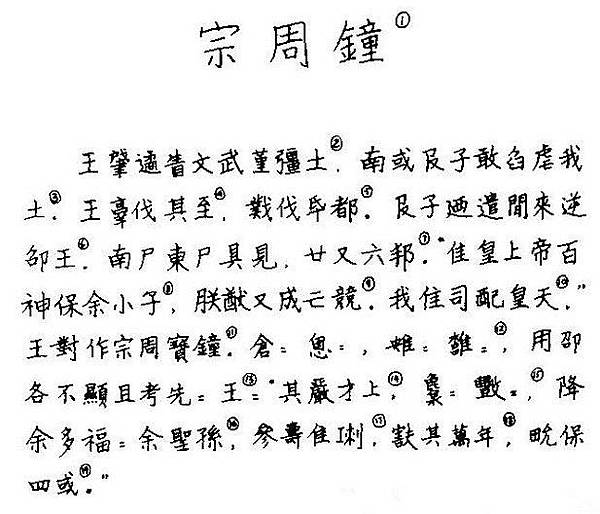 宗周鐘①
王肇遹眚文武堇彊土②，南或𠬝子敢臽虐我
土③。王𦎫伐其至④，𢿢伐氒都⑤。𠬝子迺遣閒來逆
卲王⑥。南尸東尸具見，廿又六邦⑦。“隹皇上帝百
神保余小子⑧，朕猷又成亡競⑨。我隹司配皇天⑩。”
王對作宗周寶鐘⑪。倉＝悤＝，＝雝＝⑫，用卲
各不顯且考先＝王＝⑬“其嚴才上⑭，＝＝⑮，降
余多福＝余聖孫⑯，參壽隹琍⑰，其萬年⑱，畯保
四或⑲。”